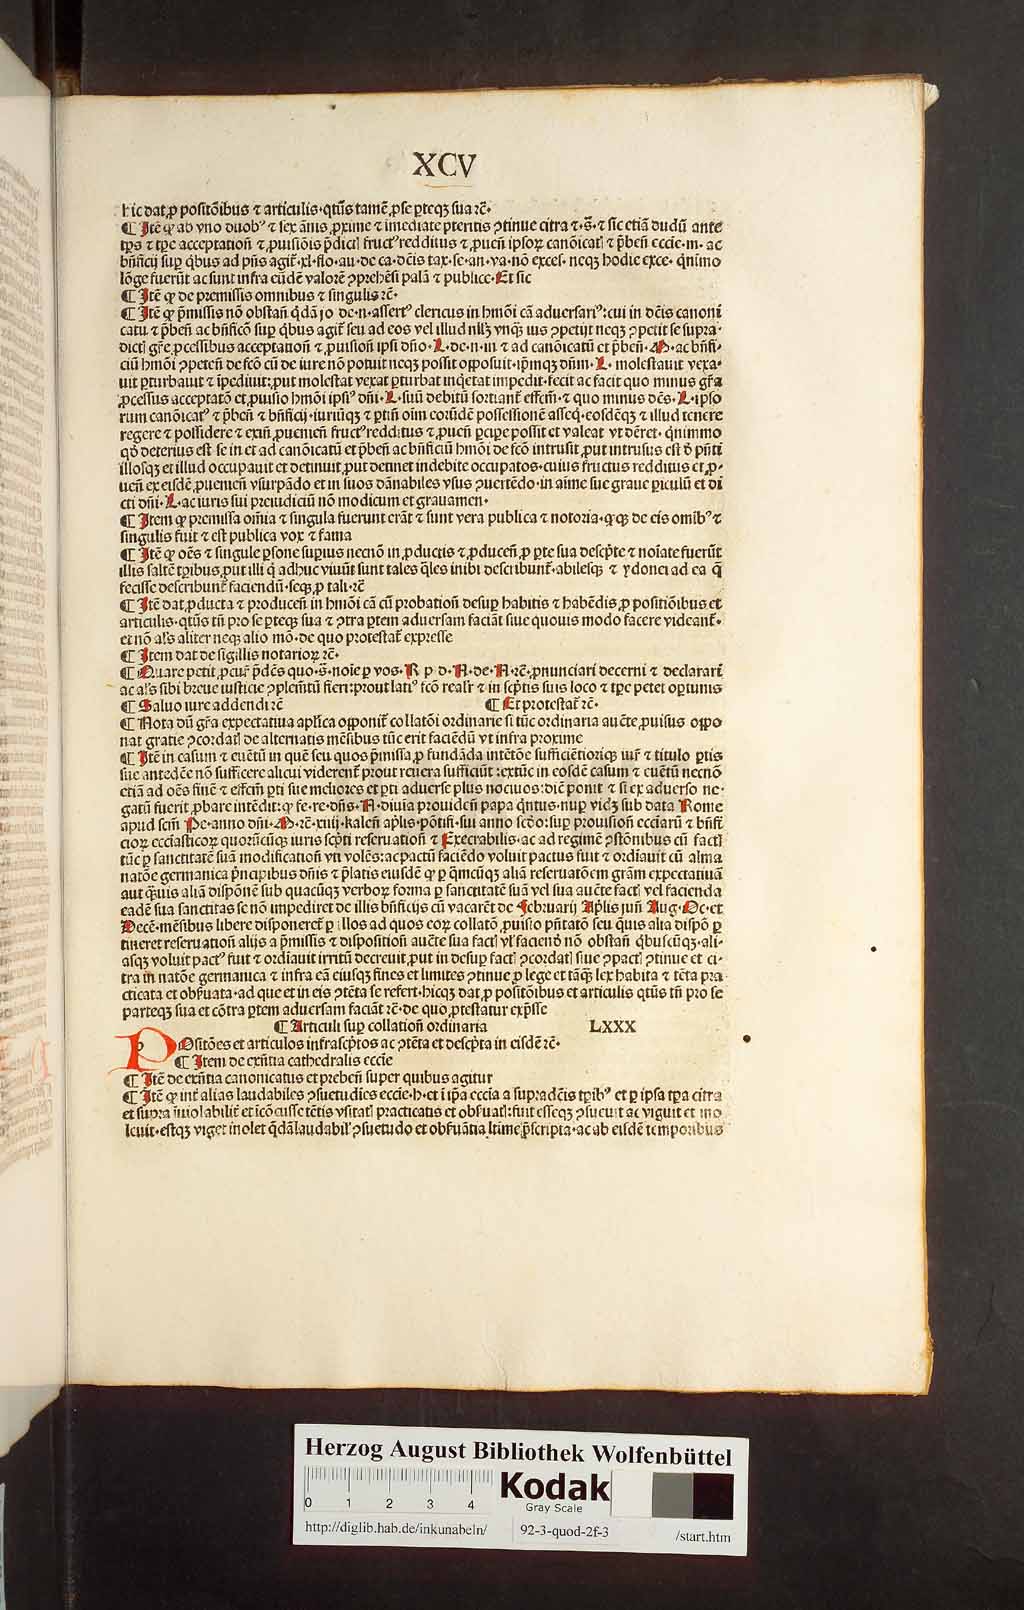 XCV
hic dat ꝓ positōibus ⁊ articulis·qtūs tamē ꝓse ꝑteqꝫ sua rē·
¶ Itē ꝙ ab vno duobꝰ ⁊ sex ānis ꝓxime ⁊ imediate ꝑteritis ꝯtinue citra ⁊·s̄·⁊ sic etiā dudū ante
tꝑs ⁊ tꝑe acceptatioñ ⁊ ꝓuisiōis p̄dicti fructꝰ redditus ⁊ ꝓueñ ipsoꝝ canōicatꝰ ⁊ p̄beñ eccie·m· ac
bñficij suꝑ qͥbus ad pñs agit᷑·xl·flo·au·de ca·dc̄is tax·se·an·va·nō exces· neqꝫ hodie exce· qͥnimo
lōge fuerūt ac sunt infra eūdē valorē ꝯprehēsi palā ⁊ publice·Et sic
¶ Itē ꝙ de premissis omnibus ⁊ singulis rē·
¶ Itē ꝙ p̄missis nō obstañ qͥdā jo de·n·assertꝰ clericus in hmōi cā aduersariꝰ:cui in dc̄is canoni
catu ⁊ p̄beñ ac bñficō suꝑ qͥbus agit᷑ seu ad eos vel illud nilꝫ vnqꝫ ius ꝯpetijt neqꝫ ꝯpetit se supra-
dicti gr̄e ꝓcessibus acceptatioñ ⁊ ꝓuisioñ ipsi dño·L·de·n·in ⁊ ad canōicatū et p̄beñ·M·ac bñfi-
ciū hmōi ꝯpeteñ de fcō cū de iure nō potuit neqꝫ possit opposuit·ipm̄qꝫ dñm·L· molestauit vexa-
uit ꝑturbauit ⁊ īpediuit:ꝓut molestat vexat ꝑturbat inqͥetat impedit·fecit ac facit quo minus gr̄a
ꝓcessus acceptatō et ꝓuisio hmōi ipsiꝰ dñi·L·suū debitū sortiant᷑ effcm̄·⁊ quo minus dc̄s·L·ipso
rum canōicatꝰ ⁊ p̄beñ ⁊ bñficij·iuriūqꝫ ⁊ ꝑtiñ oim eorūdē possessionē asseqͥ·eosdēqꝫ ⁊ illud tenere
regere ⁊ possidere ⁊ exiñ ꝓuenieñ fructꝰ redditus ⁊ ꝓueñ ꝑciꝑe possit et valeat vt dēret· qͥnimmo
qd̄ deterius est se in et ad canōicatū et p̄beñ ac bñficiū hmōi de fcō intrusit ꝓut intrusus est d̄ pñti
illosqꝫ et illud occupauit et detinuit ꝓut detinet indebite occupatos·cuius fructus redditus et ꝓ-
ueñ ex eisdē ꝓuenieñ vsurpādo et in suos dānabiles vsus ꝯuertēdo·in aīme sue graue ꝑiculū et di
cti dñi·L·ac iuris sui preiudiciū nō modicum et grauamen·
¶ Item ꝙ premissa om̄ia ⁊ singula fuerunt erāt ⁊ sunt vera publica ⁊ notoria·qͥqꝫ de eis omībꝰ ⁊
singulis fuit ⁊ est publica vox ⁊ fama
¶ Itē ꝙ oēs ⁊ singule ꝑsone suꝑius necnō in ꝓductis ⁊ ꝓduceñ ꝑ ꝑte sua descp̄te ⁊ noīate fuerūt
illis saltē tꝑibus ꝓut illi qͥ adhuc viuūt sunt tales qͣles inibi describunt᷑·abilesqꝫ ⁊ ydonei ad ea q̄
fecisse describunt᷑ faciendū·seqꝫ ꝓ tali·rē
¶ Itē dat ꝓducta ⁊ produceñ in hmōi cā cū probatioñ desuꝑ habitis ⁊ habēdis ꝓ positiōibus et
articulis·qtūs tñ pro se ꝑteqꝫ sua ⁊ ꝯtra ꝑtem aduersam faciāt siue quouis modo facere videant᷑·
et nō al̓s aliter neqꝫ alio mō·de quo protestat᷑ expresse
¶ Item dat de sigillis notarioꝝ rē·
¶ Quare petit ꝓcur̄ p̄dc̄s quo·s̄·noīe ꝑ vos·R p d·A·de·A·rē·ꝓnunciari decerni ⁊ declarari
ac al̓s sibi breue iusticie ꝯplemētū fieri:prout latiꝰ fcō realr̄ ⁊ in scp̄tis suis loco ⁊ tꝑe petet oꝑtunis
¶ Saluo iure addendi rē ¶ Et protestat᷑ rē·
¶ Nota dū gr̄a expectatiua apl̓ica opponit᷑ collatōi ordinarie si tūc ordinaria aucte ꝓuisus oppo
nat gratie ꝯcordati de alternatis mēsibus tūc erit faciēdū vt infra proxime
¶ Itē in casum ⁊ euētū in quē seu quos p̄missa ꝓ fundāda intētōe sufficiētioriqꝫ iuꝶ ⁊ titulo ꝑtis
sue antedc̄e nō sufficere alicui viderent᷑ prout reuera sufficiūt:extūc in eosdē casum ⁊ euētū necnō
etiā ad oēs finē ⁊ effcm̄ ꝑti sue meliores et ꝑti aduerse plus nociuos:dicē ponit ⁊ si ex aduerso ne-
gatū fuerit ꝓbare intēdit:ꝙ fe·re·dñs·A·diuīa prouideñ papa qͥntus·nuꝑ vidꝫ sub data Rome
apud scm̄ Pe·anno dñi·M·rē·xiiij·kaleñ aplis·pōtifi·sui anno scdo:suꝑ prouisioñ ecciarū ⁊ bñfi
cioꝝ ecciasticoꝝ quorūcūqꝫ iuris scp̄ti reseruatioñ ⁊ Execrabilis·ac ad regimē ꝑstōnibus cū facti
tūc ꝑ sanctitatē suā modificatioñ vti volēs:ac pactū faciēdo voluit pactus fuit ⁊ ordiauit cū alma
natōe germanica p̄ncipibus dñis ⁊ p̄latis eiusdē ꝙ ꝑ qͥmcūqꝫ aliā reseruatōem grām expectatiuā
aut qͣuis aliā dispōnē sub quacūqꝫ verboꝝ forma ꝑ sanctitatē suā vel sua aucte facti vel facienda
eadē sua sanctitas se nō impediret de illis bñficijs cū vacarēt de Februarij Aplis juñ Aug·Oc·et
Decē·mēsibus libere disponeret᷑ ꝑ illos ad quos eoꝝ collatō ꝓuisio pñtatō seu qͣuis alia dispō ꝑ
tineret reseruatioñ alijs a p̄missis ⁊ dispositioñ aucte sua facti vl̓ faciend nō obstañ qͥbuscūqꝫ·ali-
asqꝫ voluit pactꝰ fuit ⁊ ordiauit irritū decreuit ꝓut in desuꝑ facti ꝯcordati siue ꝯpacti ꝯtinue et ci-
tra in natōe germanica ⁊ infra eā eiusqꝫ fines et limites ꝯtinue ꝑ lege et tāqͣꝫ lex habita ⁊ tēta pra
cticata et obserͣuata·ad que et in eis ꝯtēta se refert·hicqꝫ dat ꝓ positōibus et articulis qtūs tñ pro se
parteqꝫ sua et cōtra ꝑtem aduersam faciāt rē·de quo ꝓtestatur exp̄sse
¶ Articuli suꝑ collatioñ ordinaria LXXX
POsitōes et articulos infrascp̄tos ac ꝯtēta et descp̄ta in eisdē rē·
¶ Item de exñtia cathedralis eccie
¶ Itē de exñtia canonicatus et prebeñ super quibus agitur
¶ Itē ꝙ int᷑ alias laudabiles ꝯsuetudies eccie·h·et ī ip̄a eccia a supradc̄is tꝑibꝰ et ꝑ ipsa tꝑa citra
et supra īuiolabilit᷑ et īcōcusse tētis vsitati practicatis et obserͣuati:fuit esseqꝫ ꝯsueuit ac viguit et ino
leuit·estqꝫ viget inolet qͥdā laudabil̓ ꝯsuetudo et obserͣuātia ltime p̄scripta·ac ab eisdē temporibus
Herzog August Bibliothek Wolfenbüttel
0 1 2 3 4
Kodak
Gray Scale
http://diglib.hab.de/inkunabeln/ 92-3-quod-2f-3 /start.htm